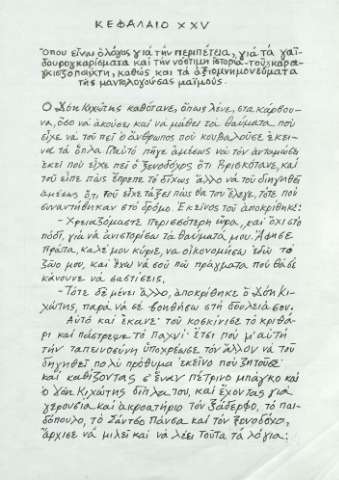 ΚΕΦΑΛΑΙΟ XXV
Ὅπου εἶναι ὁ λόγος γιά τήν περιπέτεια, γιά τά γαϊ-
δουρογκαρίσματα καί τήν νόστιμη ἱστορία τοῦ καρα-
γκιοζοπαίχτη, καθώς καί τά ἀξιομνημονεύματα
τῆς μαντολογούσας μαϊμοῦς.
Ὁ Δόν Κιχώτης καθότανε, ὅπως λένε, στα κάρβου-
να, ὅσο νά ἀκούσει καί νά μάθει τά θαύματα που
εἶχε νά τοῦ πεῖ ὁ ἄνθρωπος πού κουβαλοῦσε ἐκεῖ-
να τά ὅπλα. Γι αὐτό πῆγε ἀμέσως νά τόν ἀνταμώσει
ἐκεῖ πού εἶχε πεῖ ὁ ξενοδόχος ὅτι βρισκότανε, καί
τοῦ εἶπε πώς ἔπρεπε τό δίχως ἄλλο νά τοῦ διηγηθεῖ
ἀμέσως ὅ,τι τοῦ εἶχε τάξει πώς θα του ἔλεγε, τότε πού
συναντήθηκαν στό δρόμο. Ἐκεῖνος τοῦ ἀποκρίθηκε:
- Χρειαζόμαστε περισσότερη ὥρα, καί ὄχι στό
πόδι, γιά νά ἀνιστορίσω τά θαύματά μου. Ἄφησε
πρῶτα, καλέ μου κύριε, να οἰκονομήσω ἐδῶ τό
ζῶο μου, καί ἔχω νά σοῦ πῶ πράγματα πού θά σέ
κάνουνε νά σαστίσεις.
- Τότε δέ μένει ἄλλο, ἀποκρίθηκε ὁ Δόν Κι-
χώτης, παρά νά σέ βοηθήσω στή δουλειά σου.
Αὐτό καί ἔκανε· τοῦ κοσκίνισε τό κριθά-
ρι καί πάστρεψε τό παχνί· ἔτσι πού μ' αὐτή
τήν ταπεινοσύνη ὑποχρέωσε τόν ἄλλον νά τοῦ
διηγηθεῖ πολύ πρόθυμα ἐκεῖνο πού ζητοῦσε·
καί καθίζοντας σ' ἕναν πέτρινο μπάγκο καί
ὁ Δόν Κιχώτης δίπλα του, καί ἔχοντας γιά
γερουσία καί ἀκροατήριο τόν ξάδερφο, τό παι-
δόπουλο, τό Σάντσο Πάνσα καί τόν ξενοδόχο,
ἄρχισε νά μιλεῖ καί νά λέει τοῦτα τά λόγια: